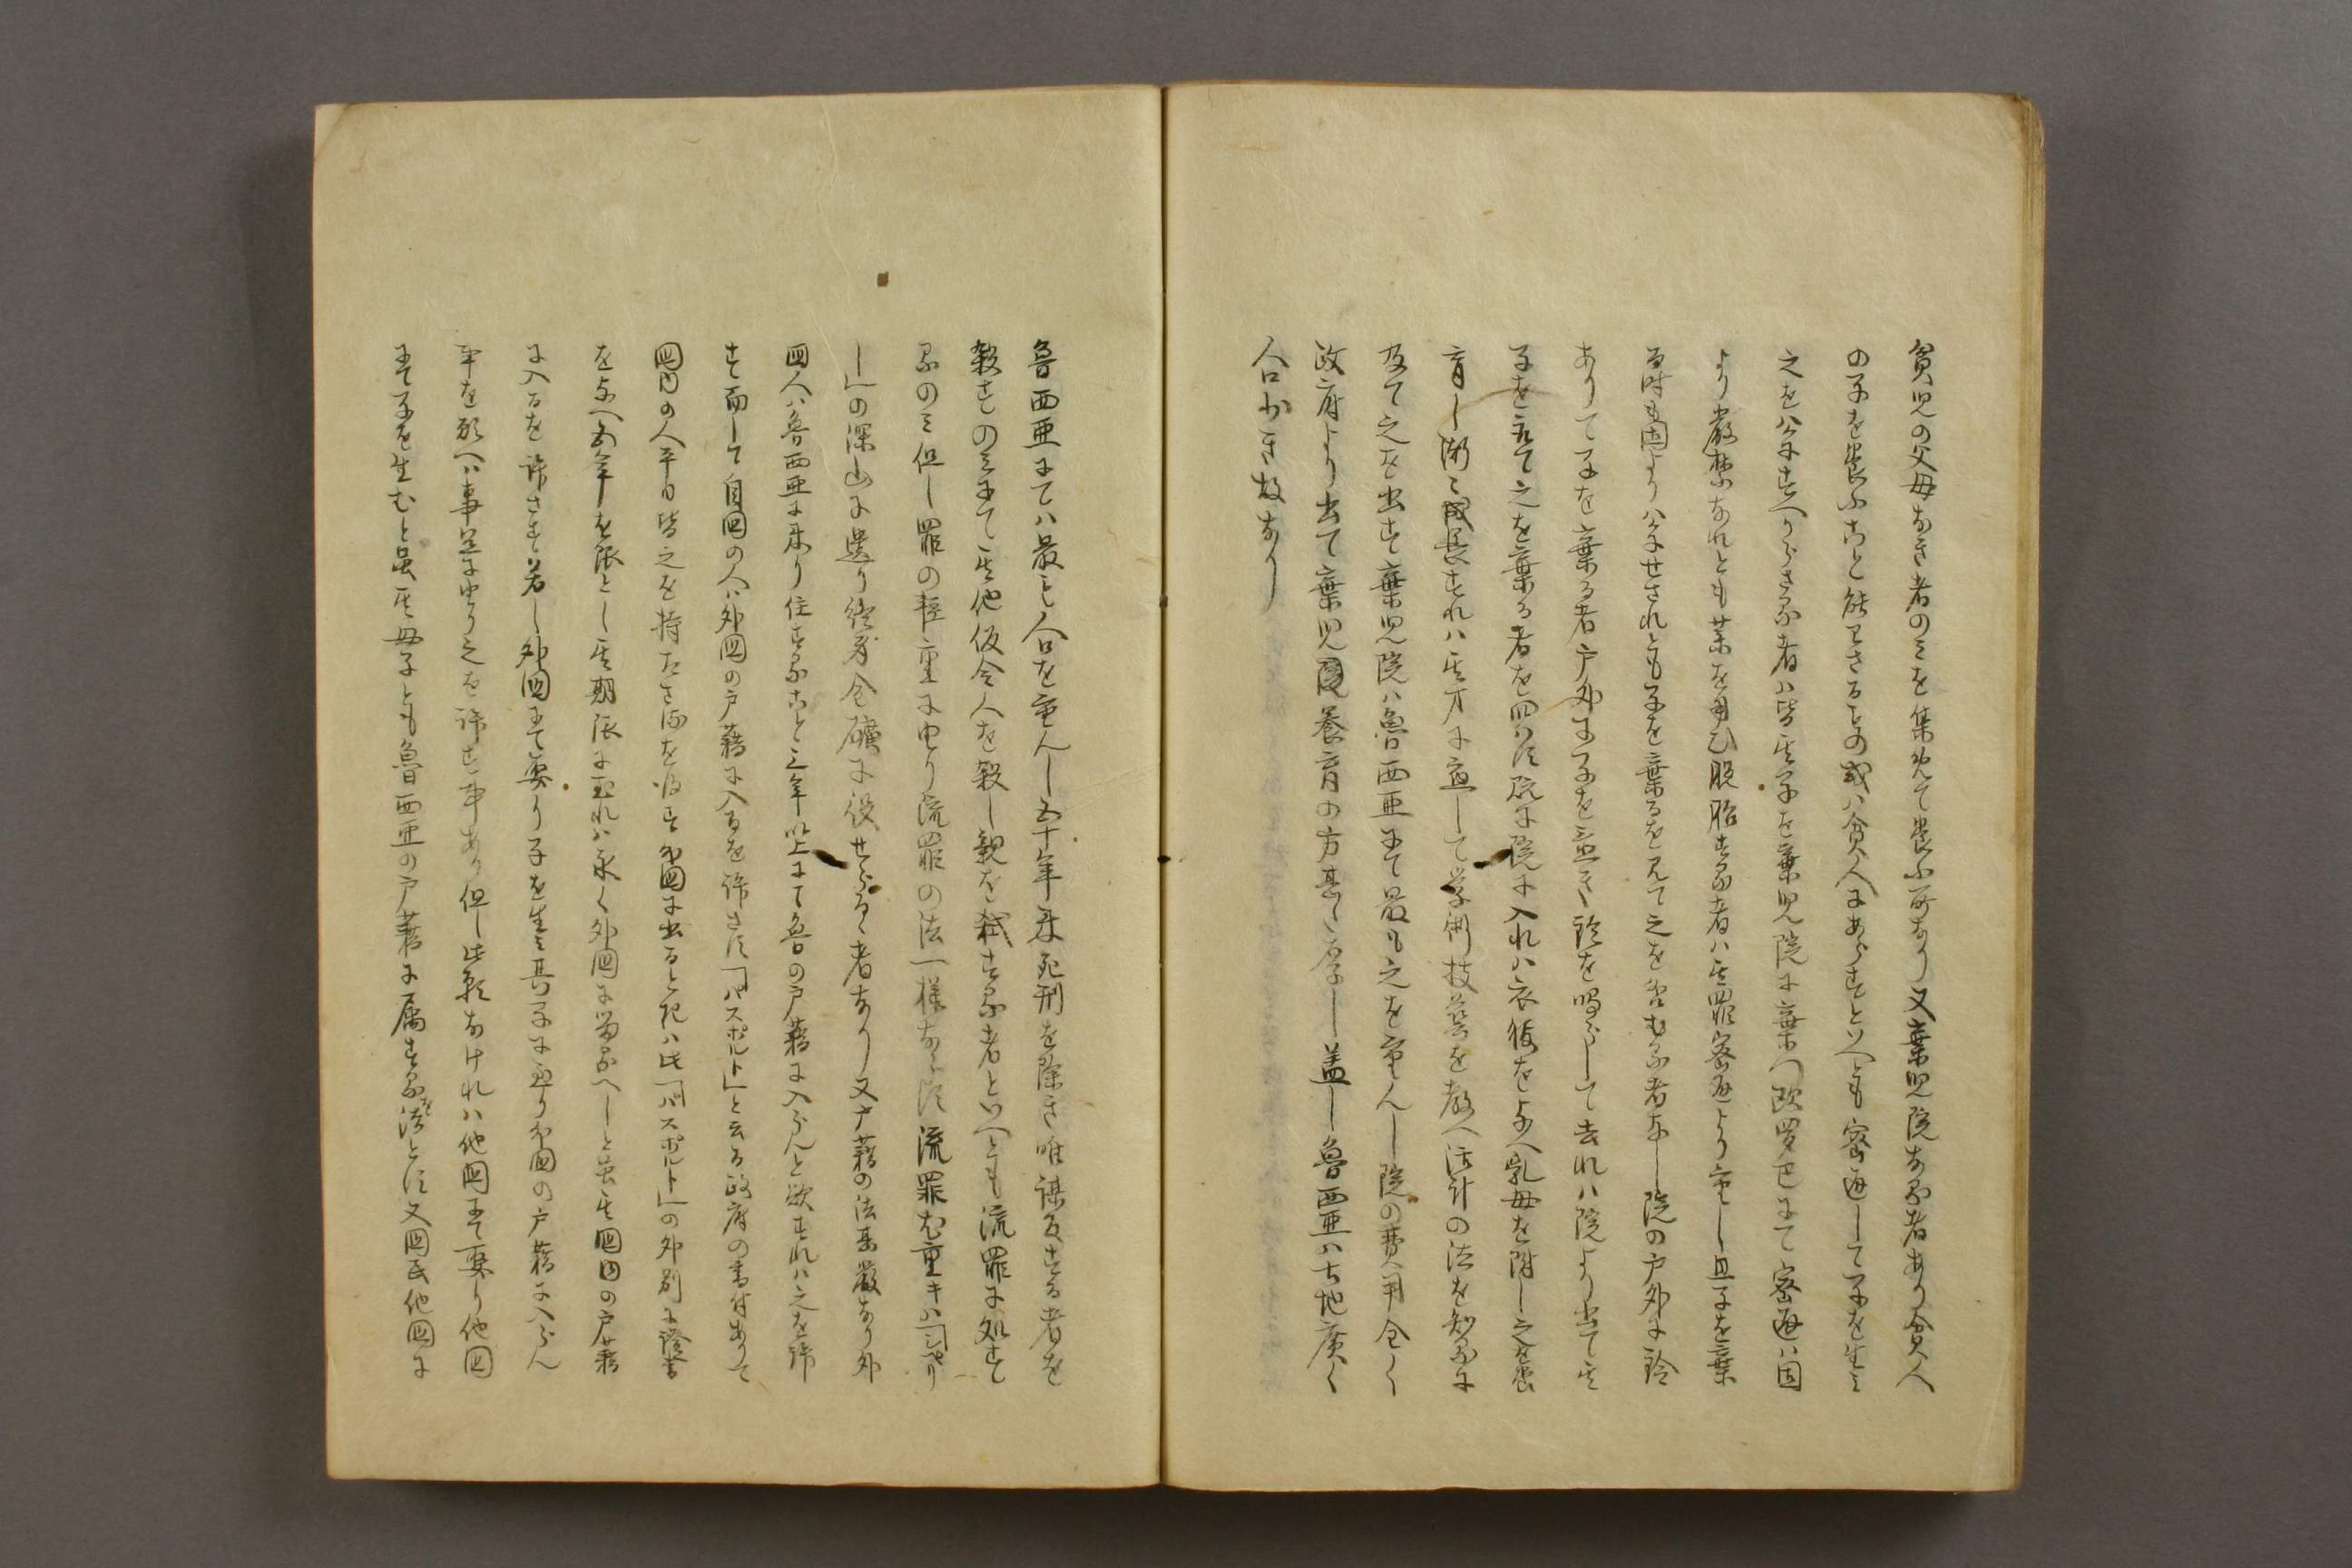 貧児の父母なき者のミを集めて畜ふ所なり又棄児院なる者あり貧人
の子を畜ふこと能ハさるもの或ハ貧人にあらすといへとも密通して子を生ミ
之を公にすへからさる者ハ皆其子を棄児院に棄つ欧羅巴にて密通ハ固
より厳禁なれとも薬を用ひ脱胎する者ハ其罪密通より重し且子を棄
る時も固より公にせされとも子を棄るを見て之を咎むる者なし院の戸外に鈴
ありて子を棄る者戸外に子を置き鈴を鳴らして去れハ院より出て其
子を取て之を棄る者を問ハす院に入れハ衣服を与へ乳母を附し之を畜
育し漸々成長すれハ其才に応して学術技芸を教へ活計の法を知るに
及て之を出す棄児院ハ魯西亜にて最も之を重んし院の費用全く
政府より出て棄児養育の方甚た厚し蓋し魯西亜ハ土地広く
人口少き故なり
魯西亜にてハ最も人口を重んし五十年来死刑を除き唯謀反する者を
殺すのミにて其他仮令人を殺し親を弑する者といへとも流罪に処す
るのミ但し罪の軽重により流罪の法一様ならす流罪尤重キハ「シベリ
ー」の深山に送り終身金礦に役せらるゝ者なり又戸籍の法甚厳なり外
国人ハ魯西亜に来り住すること三年以上にて魯の戸籍に入らんと欲すれハ之を許
す而して自国の人ハ外国の戸籍に入るを許さす「パスポルト」と云る政府の書付ありて
国内の人平日皆之を持たさるを得す外国に出ると記ハ此「パスポルト」の外別に證書
を与へ五年を限とし其期限に至れハ永く外国に留るへしと雖其国内の戸籍
に入るを許さす若し外国にて娶り子を生ミ其子に至り外国の戸籍に入らん
事を願へハ事宜により之を許す事あり但し此願なけれハ他国にて娶り他国
にて子を生むと雖其母子とも魯西亜の戸籍に属するを法とす又国民他国に